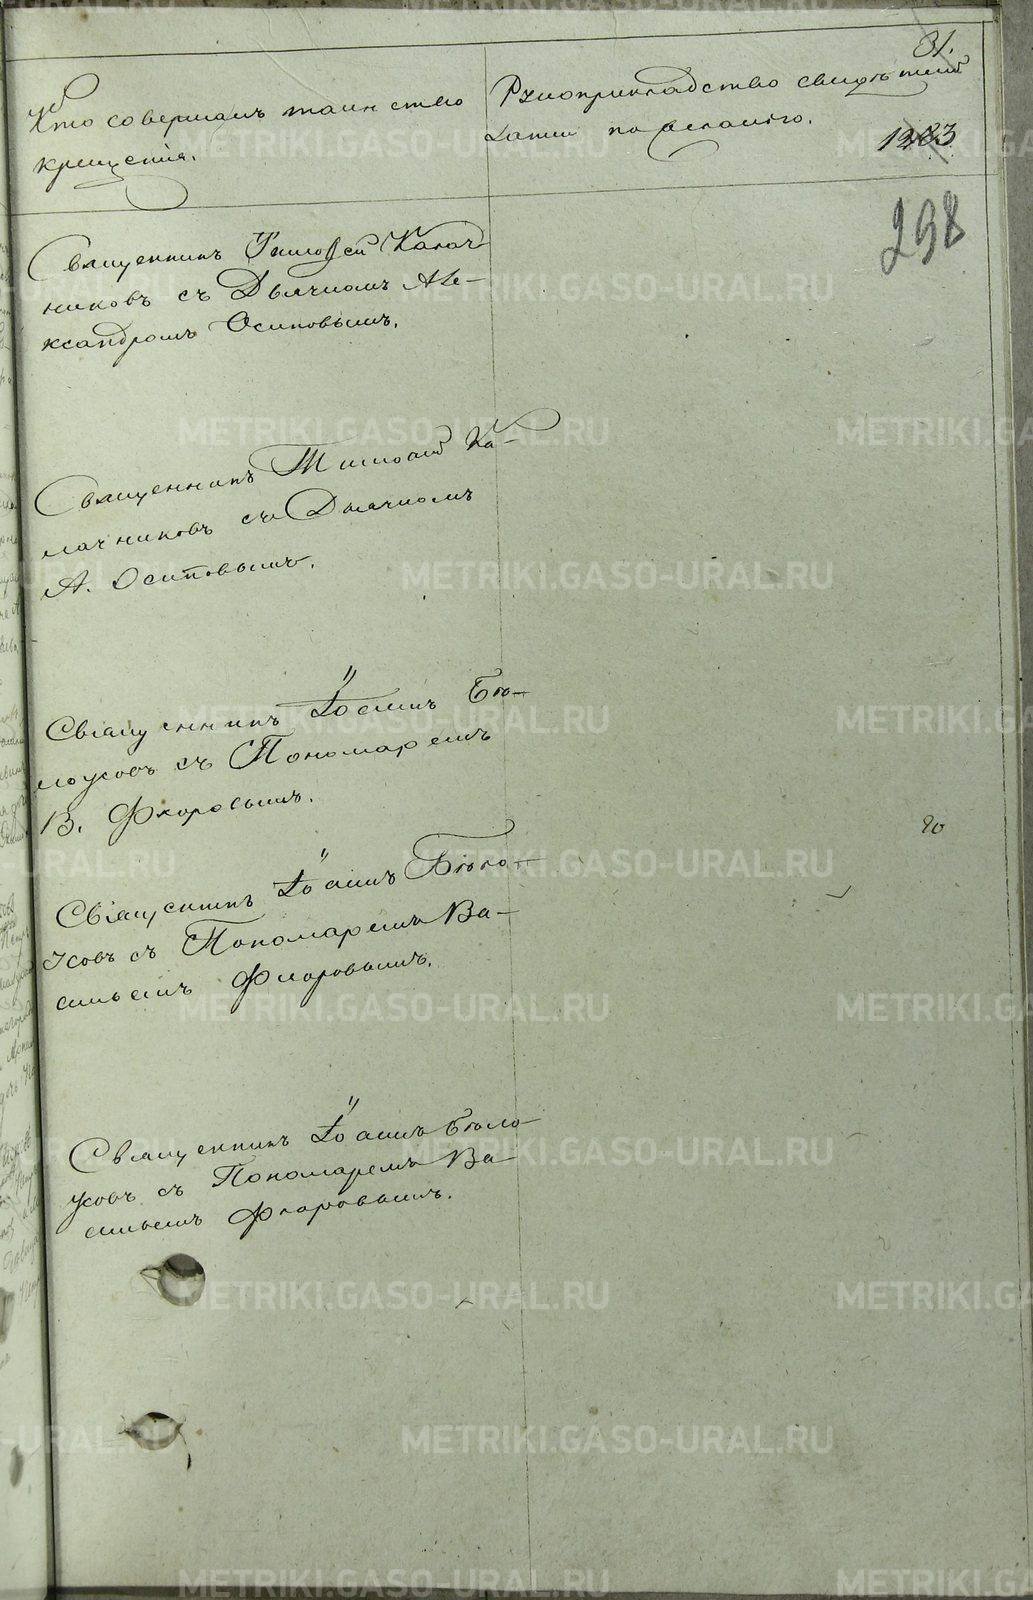 31.
Кто совершалъ таинство
крещенія.
Рукоприкладство свидѣтелей
по желанію.
1283
298
Священникъ Тимоѳей Калач
никовъ съ Дьячкомъ Але-
ксандромъ Осиповымъ.
Священникъ Тимоѳей Ка-
лачниковъ съ Дьячкомъ
А. Осиповымъ.
Священникъ Іоаннъ Бѣ-
лоусовъ съ Пономаремъ
В. Флоровымъ.
Священникъ Іоаннъ Бѣло-
усовъ съ Пономаремъ Ва-
сильемъ Флоровымъ.
Священникъ Іоаннъ Бѣло-
усовъ съ Пономаремъ Ва-
сильемъ Флоровымъ.